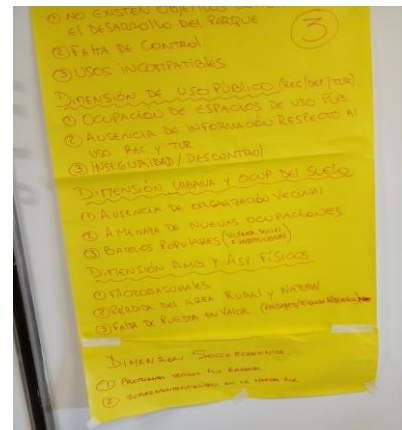 ① NO EXISTEN OBJETIVOS
EL DESARROLLO DEL PARQUE
③
② FALTA DE CONTROL
③ USOS INCOMPATIBLES
DIMENSIÓN DE USO PÚBLICO (REC/DEP./TUR)
① OCUPACIÓN DE ESPACIOS DE USO PÚB.
② AUSENCIA DE INFORMACIÓN RESPECTO AL
USO REC Y TUR
③ INSEGURIDAD / DESCONTROL
DIMENSIÓN URBANA Y OCUP DEL SUELO
① AUSENCIA DE ORGANIZACIÓN VECINAL
② AMENAZA DE NUEVAS OCUPACIONES
③ BARRIOS POPULARES (SOCIAL
E INSTITUCIONAL)
DIMENSIÓN AMB Y ASP. FÍSICOS
① MICROBASURALES
② PÉRDIDA DEL ÁREA RURAL Y NATURAL
③ FALTA DE PUESTA EN VALOR
DIMENSIÓN SOCIOECONÓMICA.
①
② EN LA MARGEN SUR